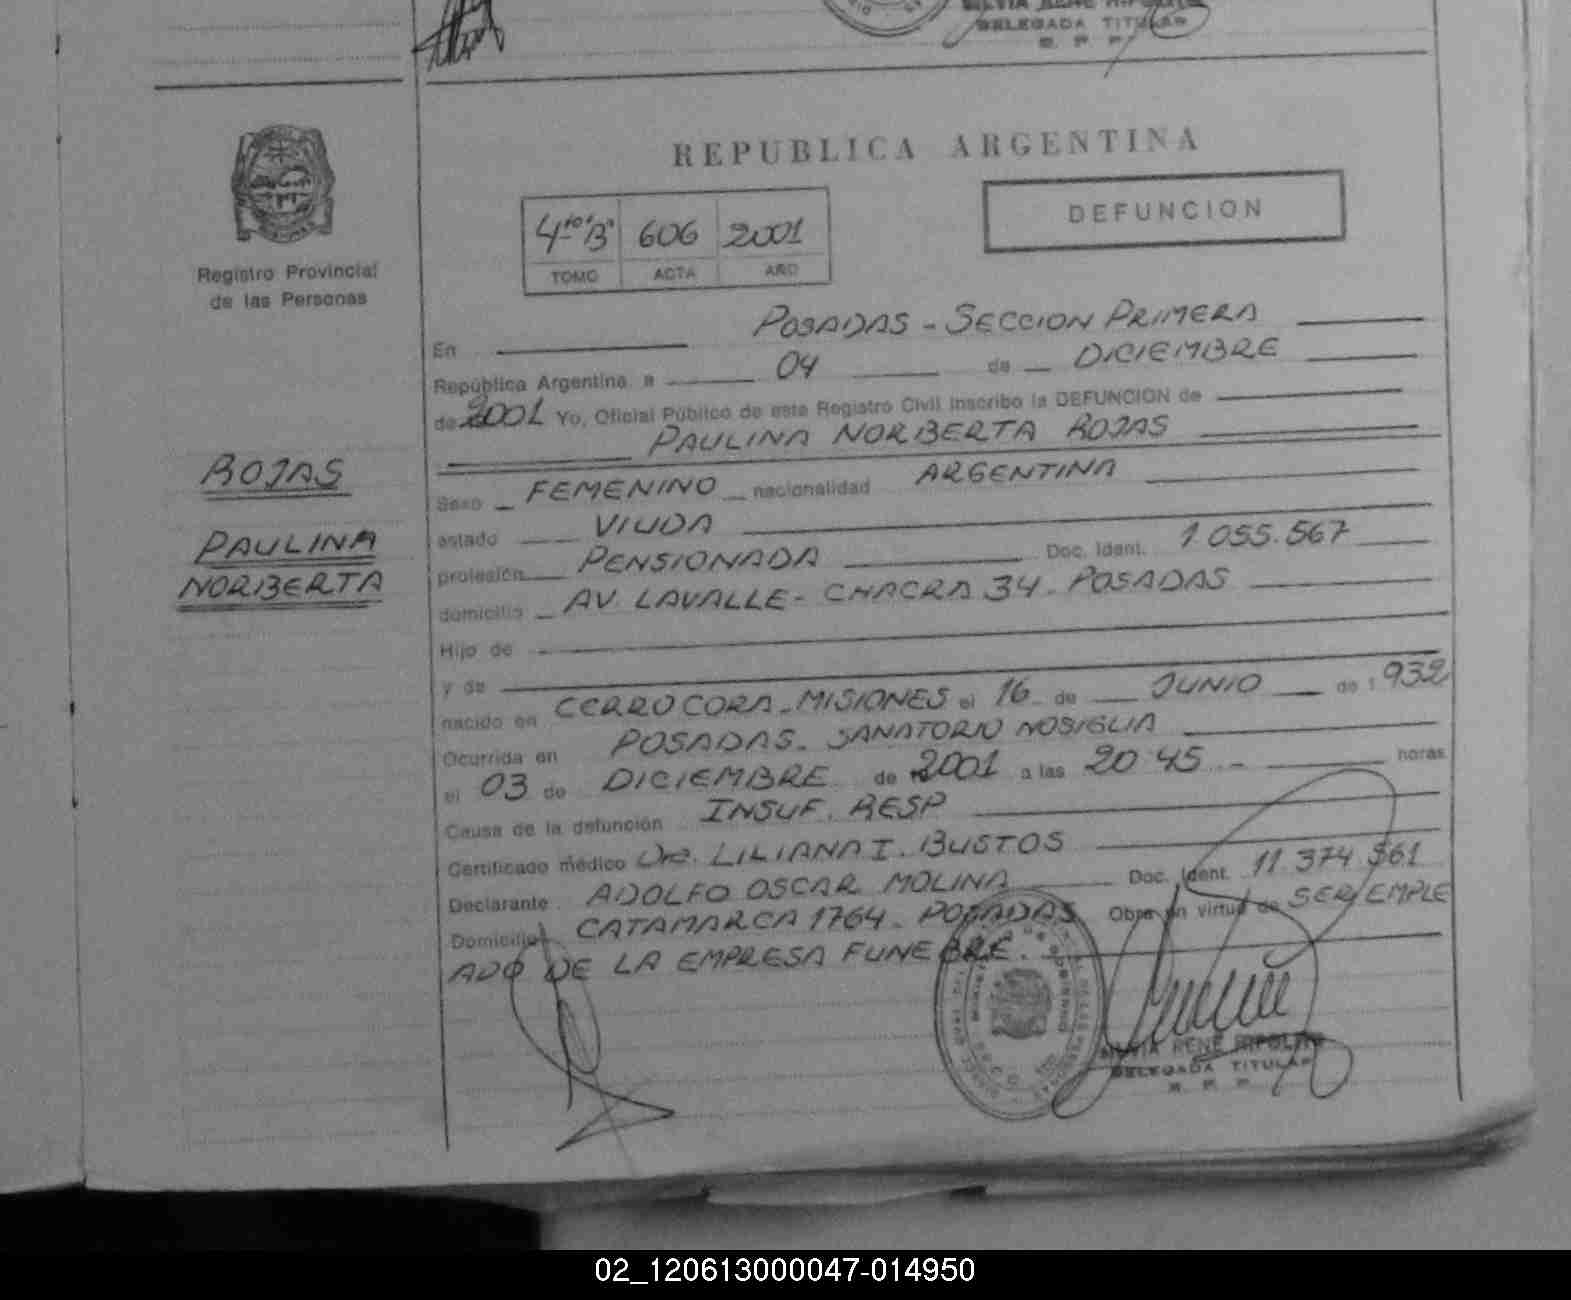 SILVIA RENE RIPOLITO
DELEGADA TITULAR
R. P. P.
REPUBLICA ARGENTINA
DEFUNCION
4to "B" 606 2001
TOMO ACTA AÑO
Registro Provincial
de las Personas
En POSADAS - SECCION PRIMERA
República Argentina a 04 de DICIEMBRE
de 2001 Yo, Oficial Público de este Registro Civil inscribo la DEFUNCION de
PAULINA NORBERTA ROJAS
ROJAS
PAULINA
NORBERTA
Sexo FEMENINO nacionalidad ARGENTINA
estado VIUDA
profesión PENSIONADA Doc. Ident. 1.055.567
domicilio AV. LAVALLE - CHACRA 34 - POSADAS
Hijo de
y de
nacido en CERRO CORA - MISIONES el 16 de JUNIO de 1932
Ocurrida en POSADAS - SANATORIO NOSIGLIA
el 03 de DICIEMBRE de 2001 a las 20 45 - horas
Causa de la defunción INSUF. RESP
Certificado médico Dra. LILIANA I. BUSTOS
Declarante ADOLFO OSCAR MOLINA Doc. Ident. 11.374.561
Domicilio CATAMARCA 1764 - POSADAS Obra en virtud de SER EMPLE
ADO DE LA EMPRESA FUNEBRE.
DELEGADA TITULAR
R. P. P.
02_120613000047-014950